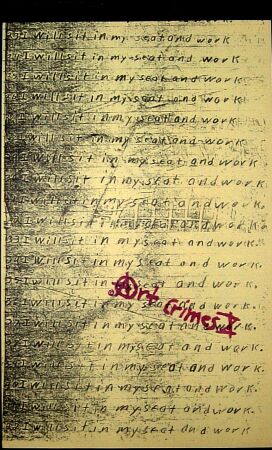 I will sit in my seat and work
I will sit in my seat and work.
I will sit in my seat and work.
I will sit in my seat and work.
I will sit in my seat and work.
I will sit in my seat and work.
I will sit in my seat and work.
I will sit in my seat and work.
I will sit in my seat and work.
I will sit in my seat and work.
I will sit in my seat and work.
I will sit in my seat and work.
I will sit in my seat and work.
Art Crimes V
I will sit in my seat and work.
I will sit in my seat and work.
I will sit in my seat and work.
I will sit in my seat and work.
I will sit in my seat and work.
I will sit in my seat and work.
I will sit in my seat and work.